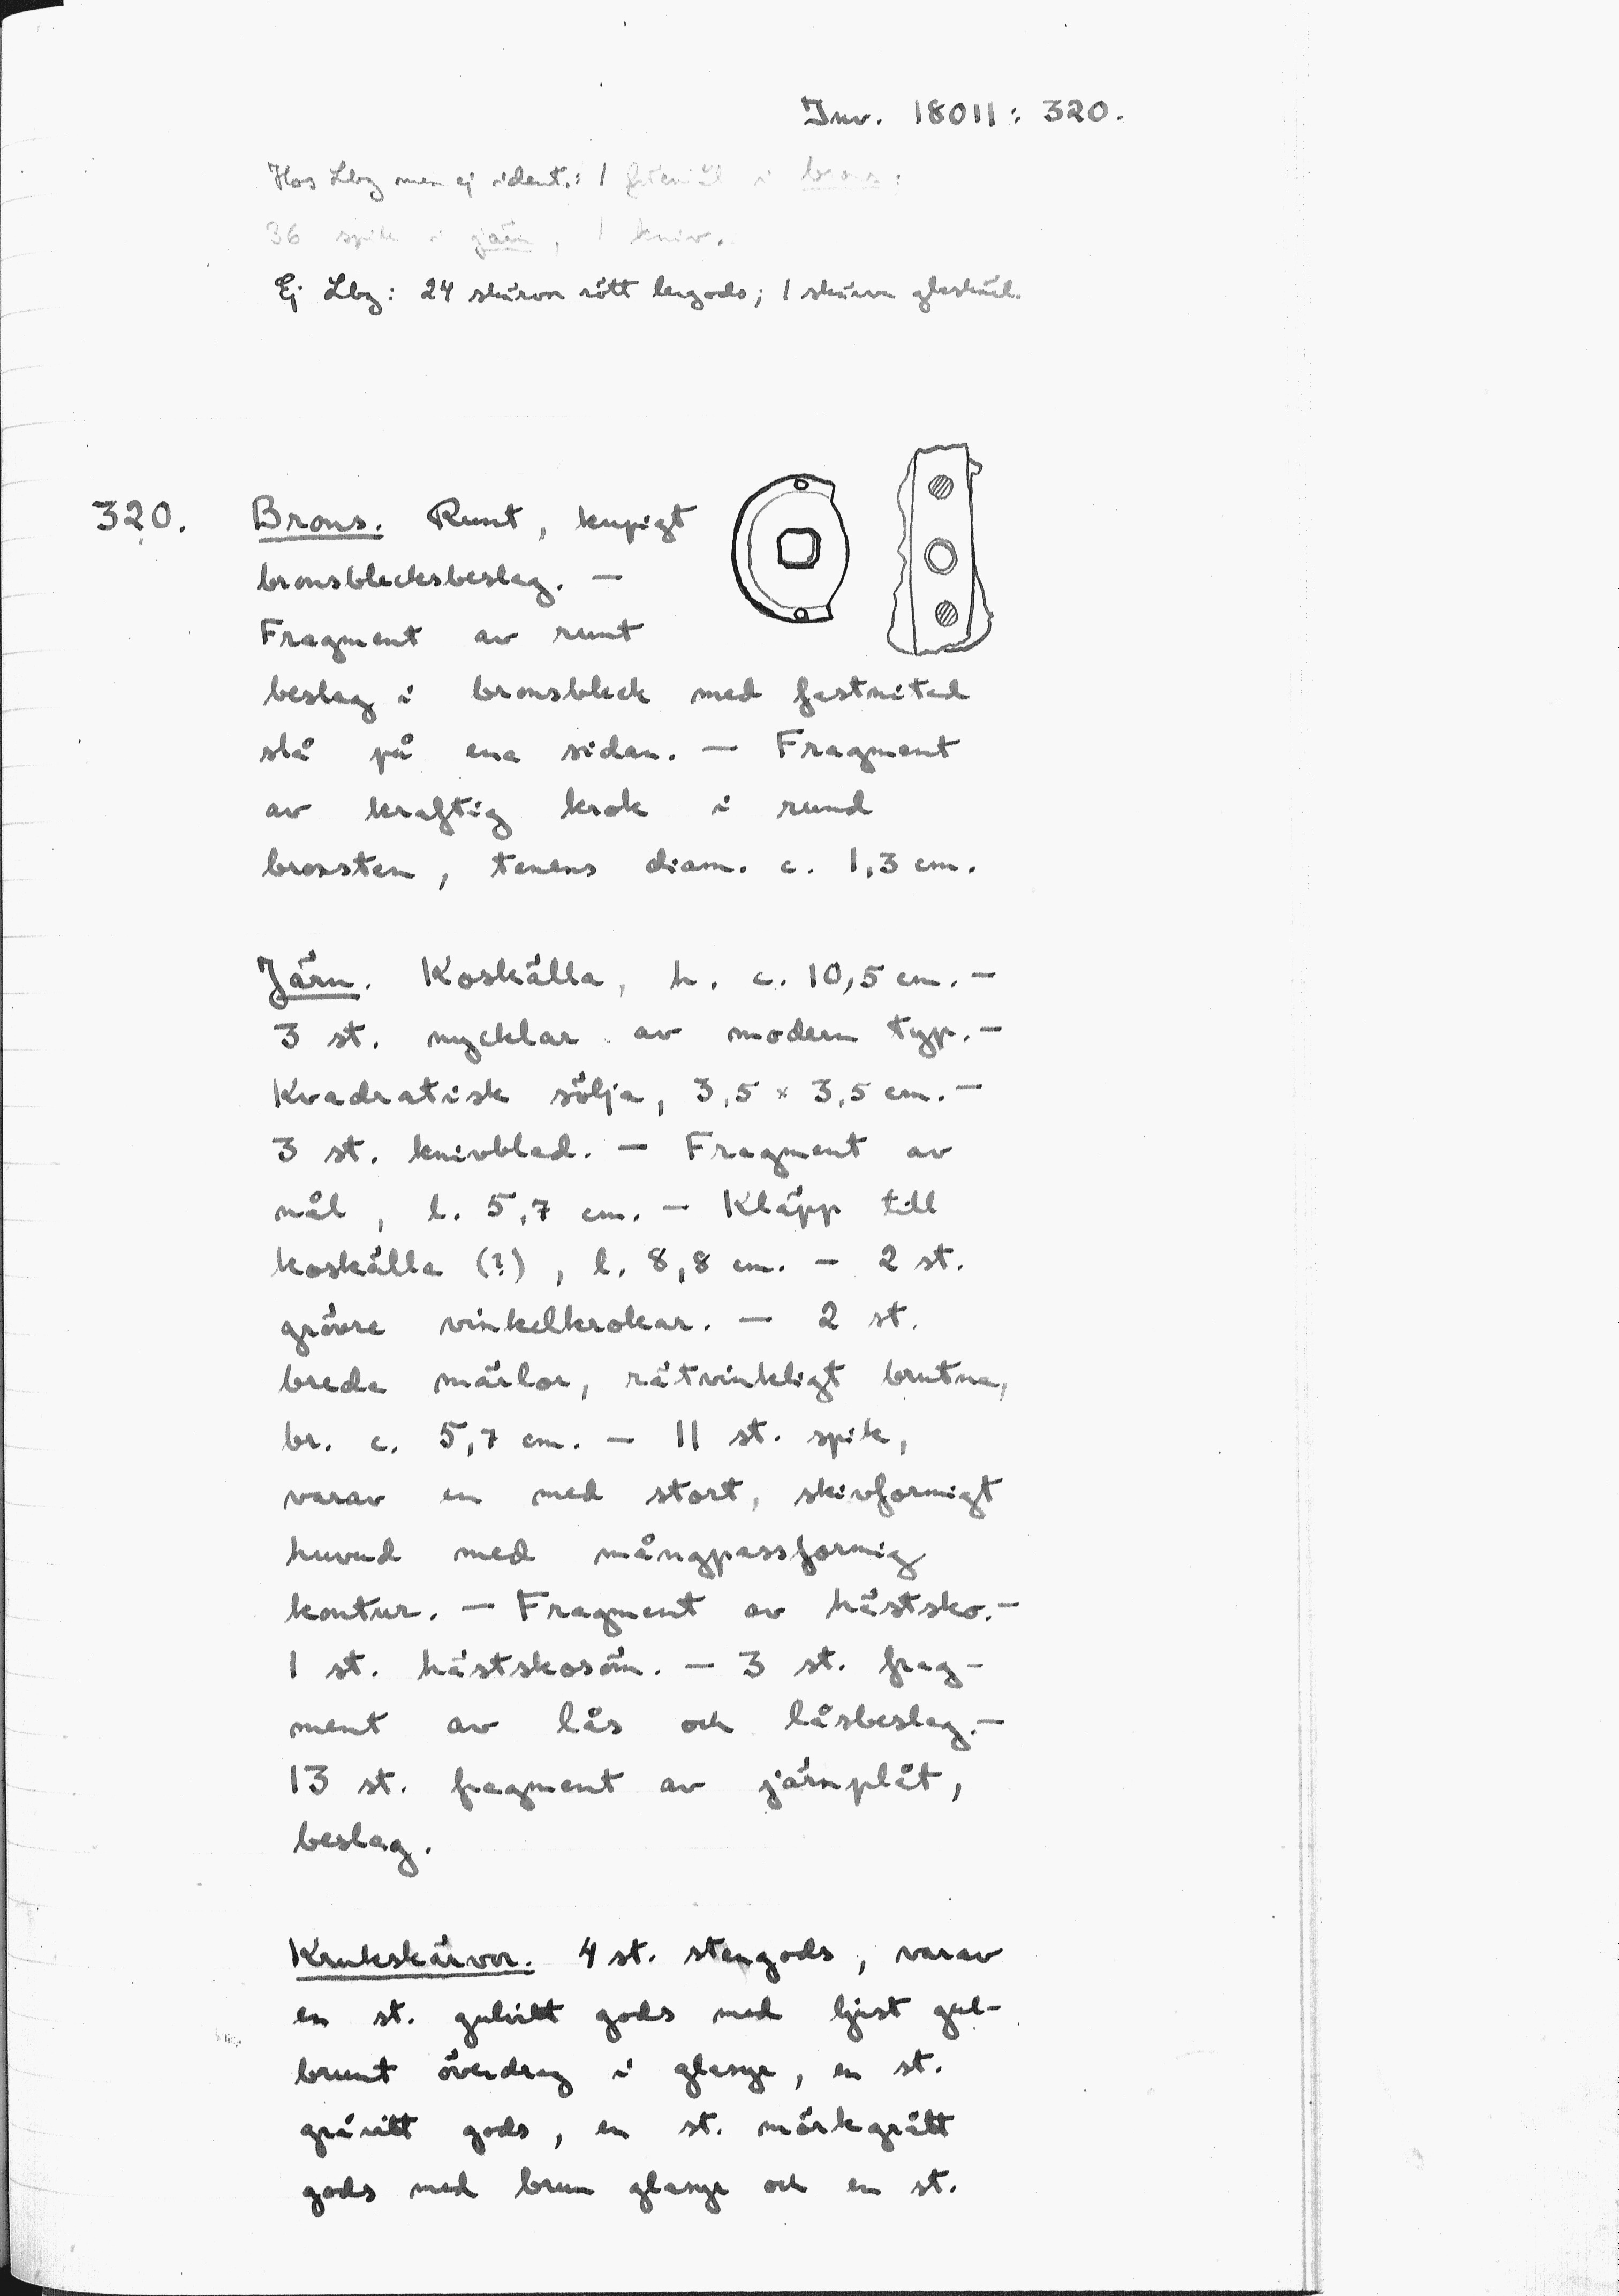 Inv. 18011: 320.
Hos Lbg men ej ident.: 1 föremål i brons;
36 spik i järn, 1 kniv.
Ej Lbg: 24 skärvor rött lergods; 1 skärva glaskärl.
320. Brons. Runt, kupigt
bronsblecksbeslag. —
Fragment av runt
beslag i bronsbleck med fastnitad
slå på ena sidan. — Fragment
av kraftig krok i rund
bronsten, tenens diam. c. 1,3 cm.
Järn. Koskälla, h. c. 10,5 cm. —
3 st. nycklar av modern typ. —
Kvadratisk sölja, 3,5 × 3,5 cm. —
3 st. knivblad. — Fragment av
nål, l. 5,7 cm. — Kläpp till
koskälla (?), l. 8,8 cm. — 2 st.
grövre vinkelkrokar. — 2 st.
breda märlor, rätvinkligt brutna,
br. c. 5,7 cm. — 11 st. spik,
varav en med stort, skivformigt
huvud med mångpassformig
kontur. — Fragment av hästsko. —
1 st. hästskosöm. — 3 st. frag-
ment av lås och låsbeslag. —
13 st. fragment av järnplåt,
beslag.
Krukskärvor. 4 st. stengods, varav
en st. gulvitt gods med ljust gul-
brunt överdrag i glasyr, en st.
gråvitt gods, en st. mörkgrått
gods med brun glasyr och en st.